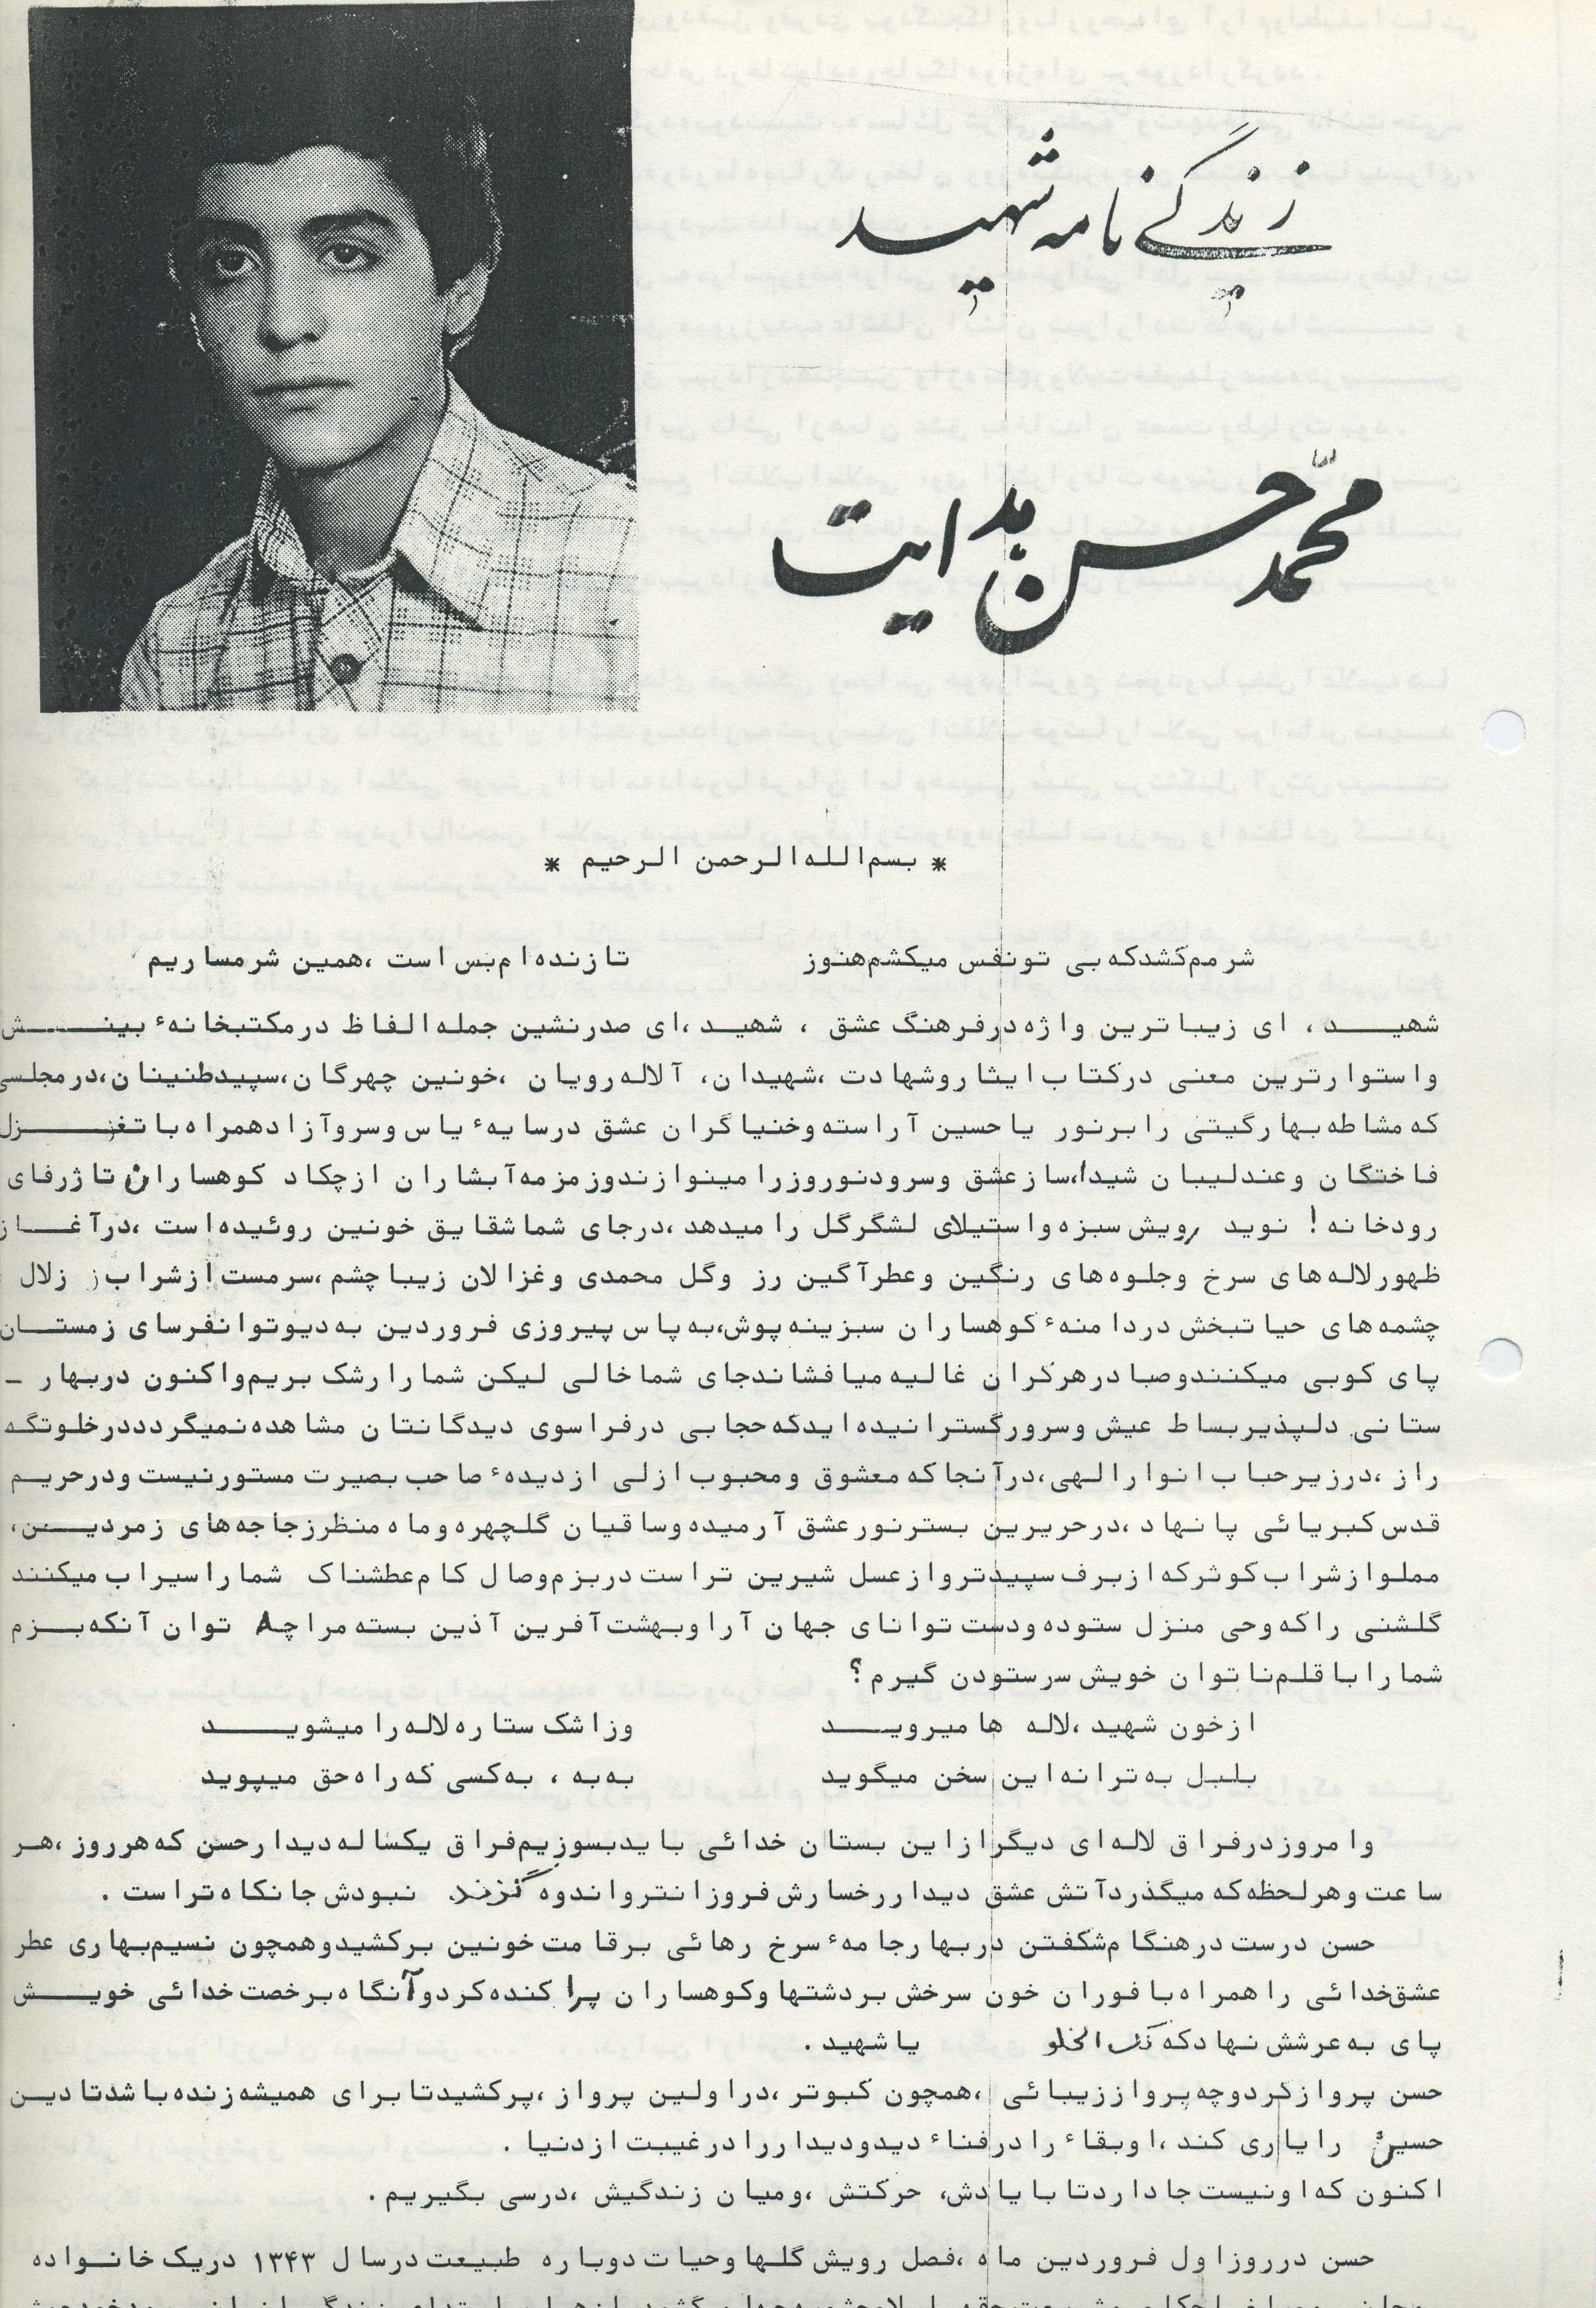 زندگی نامه شهید
محمد حسن هدایت
* بسم الله الرحمن الرحیم *
شرمم کشد که بی تو نفس میکشم هنوز تا زنده ام بس است ،همین شرمساریم
شهیـــد ، ای زیباترین واژه در فرهنگ عشق ، شهیـد ،ای صدرنشین جمله الفاظ در مکتبخانهٔ بینـــش
و استوارترین معنی در کتاب ایثار و شهادت ،شهیدان، آلاله رویان ،خونین چهرگان،سپیدطنینان،در مجلسی
که مشاطه بهار گیتی را بر نور یا حسین آراسته و خنیاگران عشق در سایهٔ یاس و سرو آزاد همراه با تغـــزل
فاختگان و عندلیبان شیدا،ساز عشق و سرود نوروز را مینوازند و زمزمه آبشاران از چکاد کوهساران تا ژرفای
رودخانه! نوید رویش سبزه و استیلای لشگر گل را میدهد ،در جای شما شقایق خونین روئیده است ،در آغــاز
ظهور لاله های سرخ و جلوه های رنگین و عطرآگین رز و گل محمدی و غزالان زیبا چشم ،سرمست از شراب زلال
چشمه های حیاتبخش در دامنهٔ کوهساران سبزینه پوش،به پاس پیروزی فروردین به دیو توانفرسای زمستــان
پای کوبی میکنند و صبا در هر کران غالیه میافشاند جای شما خالی لیکن شما را رشک بریم و اکنون در بهار ـ
ستانی دلپذیر بساط عیش و سرور گسترانیده اید که حجابی در فراسوی دیدگانتان مشاهده نمیگردد در خلوتگه
راز ،در زیر حباب انوار الهی،در آنجا که معشوق و محبوب ازلی از دیدهٔ صاحب بصیرت مستور نیست و در حریـم
قدس کبریائی پا نهاد ،در حریرین بستر نور عشق آرمیده و ساقیان گلچهره و ماه منظر زجاجه های زمردیـــن،
مملو از شراب کوثر که از برف سپیدتر و از عسل شیرین تر است در بزم وصال کام عطشناک شما را سیراب میکنند
گلشنی را که وحی منزل ستوده و دست توانای جهان آرا و بهشت آفرین آذین بسته مرا چه توان آنکه بــزم
شما را با قلم ناتوان خویش سر ستودن گیرم ؟
از خون شهید ،لاله ها میرویــــد وز اشک ستاره لاله را میشویــــد
بلبل به ترانه این سخن میگوید به به ، به کسی که راه حق میپوید
و امروز در فراق لاله ای دیگر از این بستان خدائی باید بسوزیم فراق یکساله دیدار حسن که هر روز ،هـر
ساعت و هر لحظه که میگذرد آتش عشق دیدار رخسارش فروزانتر و اندوه گزند نبودش جانکاه تر است .
حسن درست در هنگام شکفتن در بهار جامهٔ سرخ رهائی بر قامت خونین برکشید و همچون نسیم بهاری عطر
عشق خدائی را همراه با فوران خون سرخش بر دشتها و کوهساران پراکنده کرد و آنگاه برخصت خدائی خویــــش
پای به عرشش نهاد که یا شهید .
حسن پرواز کرد و چه پرواز زیبائی ،همچون کبوتر ،در اولین پرواز ،پر کشید تا برای همیشه زنده باشد تا دین
حسین را یاری کند ،او بقاء را در فناء دید و دیدار را در غیبت از دنیا .
اکنون که او نیست جا دارد تا با یادش، حرکتش ،و میان زندگیش ،درسی بگیریم .
حسن در روز اول فروردین ماه ،فصل رویش گلها و حیات دوباره طبیعت در سال ۱۳۴۳ در یک خانــواده